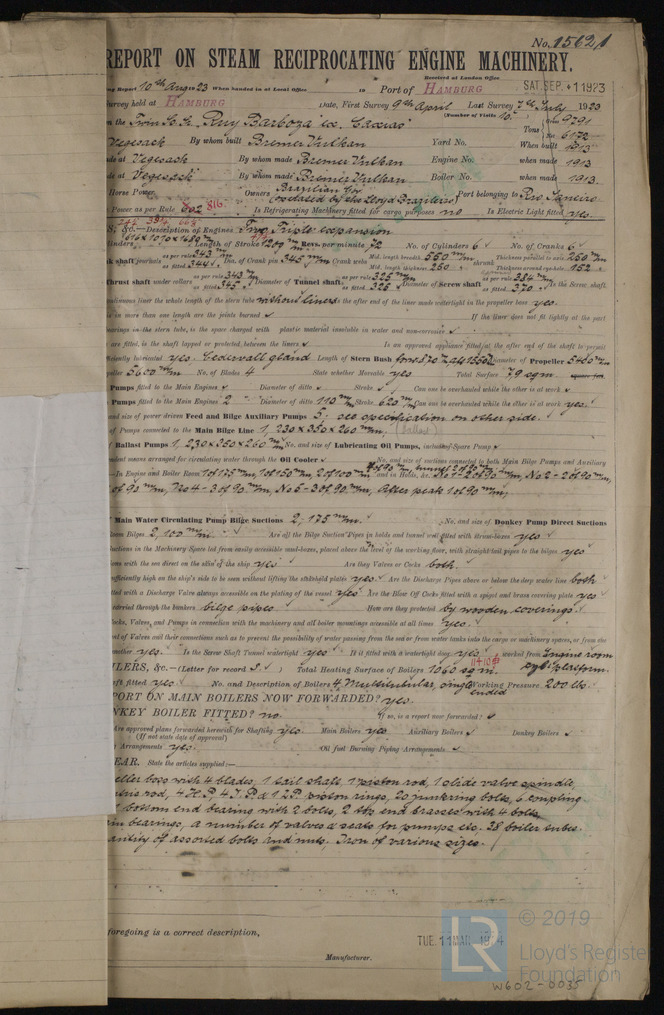 No. 15621
REPORT ON STEAM RECIPROCATING ENGINE MACHINERY.
Received at London Office
ng Report 10th Aug 1923 When handed in at Local Office 19 Port of HAMBURG SAT. SEP. 1 1923
Survey held at HAMBURG Date, First Survey 9th April Last Survey 7th July 1923
(Number of Visits 10.)
on the Twin Sc. Sr. "Ruy Barboza" ex. "Caxias" Tons 9791
6172
Vegesack By whom built Bremer Vulkan Yard No. When built 1913
at Vegesack By whom made Bremer Vulkan Engine No. when made 1913
at Vegesack By whom made Bremer Vulkan Boiler No. when made 1913.
Horse Power Owners Brazilian Gov. Port belonging to Rio Janeiro
(operated by the Lloyd Brazileiro)
Power as per Rule 602 816. Is Refrigerating Machinery fitted for cargo purposes no Is Electric Light fitted yes.
S, &c.—Description of Engines Two Triple expansion
Length of Stroke 1200 m/m Revs. per minute 72 No. of Cylinders 6 No. of Cranks 6
shaft journals as per rule 343 m/m as fitted 344 Dia. of Crank pin 345 m/m Crank webs Mid. length breadth 550 m/m Mid. length thick 250 shrunk Thickness parallel to axis 250 m/m Thickness around eye-hole 152
Thrust shaft under collars as per rule 343 m/m as fitted 345 Diameter of Tunnel shaft as per rule 325 m/m as fitted 326 Diameter of Screw shaft as per rule 354 m/m as fitted 370 Is the Screw shaft
continuous liner the whole length of the stern tube without liners Is the after end of the liner made watertight in the propeller boss yes.
is in more than one length are the joints burned If the liner does not fit tightly at the part
bearings in the stern tube, is the space charged with plastic material insoluble in water and non-corrosive
are fitted, is the shaft lapped or protected between the liners Is an approved appliance fitted at the after end of the shaft to permit
efficiently lubricated yes. Cederwall gland Length of Stern Bush Diameter of Propeller 5400 m/m
peller 5600 m/m No. of Blades 4 State whether Moveable yes Total Surface 7.9 sqm.
Pumps fitted to the Main Engines Diameter of ditto Stroke Can one be overhauled while the other is at work
Pumps fitted to the Main Engines 2 Diameter of ditto 113 m/m Stroke 620 m/m Can one be overhauled while the other is at work yes.
and size of power driven Feed and Bilge Auxiliary Pumps 5, see specification on other side.
of Pumps connected to the Main Bilge Line 1, 230 x 350 x 260 m/m (Ballast)
Ballast Pumps 1, 230 x 350 x 260 m/m No. and size of Lubricating Oil Pumps, including Spare Pump
dent means arranged for circulating water through the Oil Cooler No. and size of suctions connected to both Main Bilge Pumps and Auxiliary
—In Engine and Boiler Room 1 of 175 m/m, 1 of 150 m/m, 2 of 100 m/m and in Holds, &c. No 1 - 2 of 90 m/m, No 2 - 2 of 90 m/m,
of 90 m/m, No 4 - 3 of 90 m/m, No 5 - 3 of 90 m/m, After peak 1 of 90 m/m,
Main Water Circulating Pump Bilge Suctions 2, 175 m/m. No. and size of Donkey Pump Direct Suctions
Room Bilges 2, 100 m/m Are all the Bilge Suction Pipes in holds and tunnel well fitted with strum-boxes yes
Suctions in the Machinery Space led from easily accessible mud-boxes, placed above the level of the working floor, with straight tail pipes to the bilges yes
ons with the sea direct on the skin of the ship yes Are they Valves or Cocks both.
sufficiently high on the ship's side to be seen without lifting the stokehold plates yes Are the Discharge Pipes above or below the deep water line both
fitted with a Discharge Valve always accessible on the plating of the vessel yes Are the Blow Off Cocks fitted with a spigot and brass covering plate yes
carried through the bunkers bilge pipes How are they protected by wooden coverings.
Cocks, Valves, and Pumps in connection with the machinery and all boiler mountings accessible at all times yes.
nt of Valves and their connections such as to prevent the possibility of water passing from the sea or from water tanks into the cargo or machinery spaces, or from one
another yes. Is the Screw Shaft Tunnel watertight yes Is it fitted with a watertight door yes. worked from Engine room
cyl. platform.
ILERS, &c.—(Letter for record S) Total Heating Surface of Boilers 1060 sqm.
ft fitted yes No. and Description of Boilers 4, Multitubular, single ended Working Pressure 200 lbs.
PORT ON MAIN BOILERS NOW FORWARDED? yes.
NKEY BOILER FITTED? no. If so, is a report now forwarded?
Are approved plans forwarded herewith for Shafting yes. Main Boilers yes Auxiliary Boilers Donkey Boilers
(If not state date of approval)
Arrangements yes. Oil fuel Burning Piping Arrangements
EAR. State the articles supplied:—
eller boss with 4 blades, 1 tail shaft, 1 piston rod, 1 slide valve spindle,
rod, 4 H.P., 4 I.P. & 1 L.P. piston rings, 20 junkring bolts, 6 coupling
bottom end bearing with 2 bolts, 2 top end brasses with 4 bolts
in bearings, a number of valves & seats for pumps etc. 38 boiler tubes
antity of assorted bolts and nuts, Iron of various sizes.
foregoing is a correct description,
TUE. 11 MAR. 1924
Manufacturer.
LR
© 2019
Lloyd's Register
Foundation
W602-0035